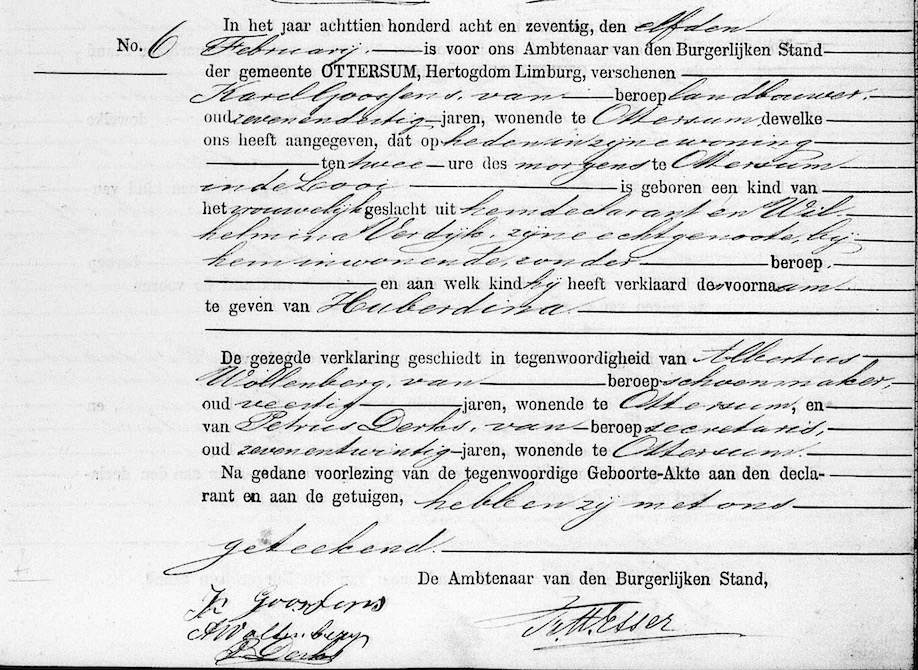 In het jaar achttien honderd acht en zeventig, den elfden
No. 6 Februarij is voor ons Ambtenaar van den Burgerlijken Stand
der gemeente OTTERSUM, Hertogdom Limburg, verschenen
Karel Goossens, van beroep landbouwer,
oud zevenendertig jaren, wonende te Ottersum, dewelke
ons heeft aangegeven, dat op heden in zijne woning
ten twee ure des morgens te Ottersum
in de Looi is geboren een kind van
het vrouwelijk geslacht uit hem declarant en Wil-
helmina Verdijk, zijne echtgenoote, bij
hem inwonende, zonder beroep.
en aan welk kind hij heeft verklaard de voornaam
te geven van Huberdina
De gezegde verklaring geschiedt in tegenwoordigheid van Albertus
Woltenberg, van beroep schoenmaker,
oud veertig jaren, wonende te Ottersum, en
van Petrus Derks, van beroep secretaris,
oud zevenentwintig jaren, wonende te Ottersum.
Na gedane voorlezing van de tegenwoordige Geboorte-Akte aan den decla-
rant en aan de getuigen, hebben zij met ons
geteekend
De Ambtenaar van den Burgerlijken Stand,
K Goossens
A Woltenberg
P. Derks
Esser